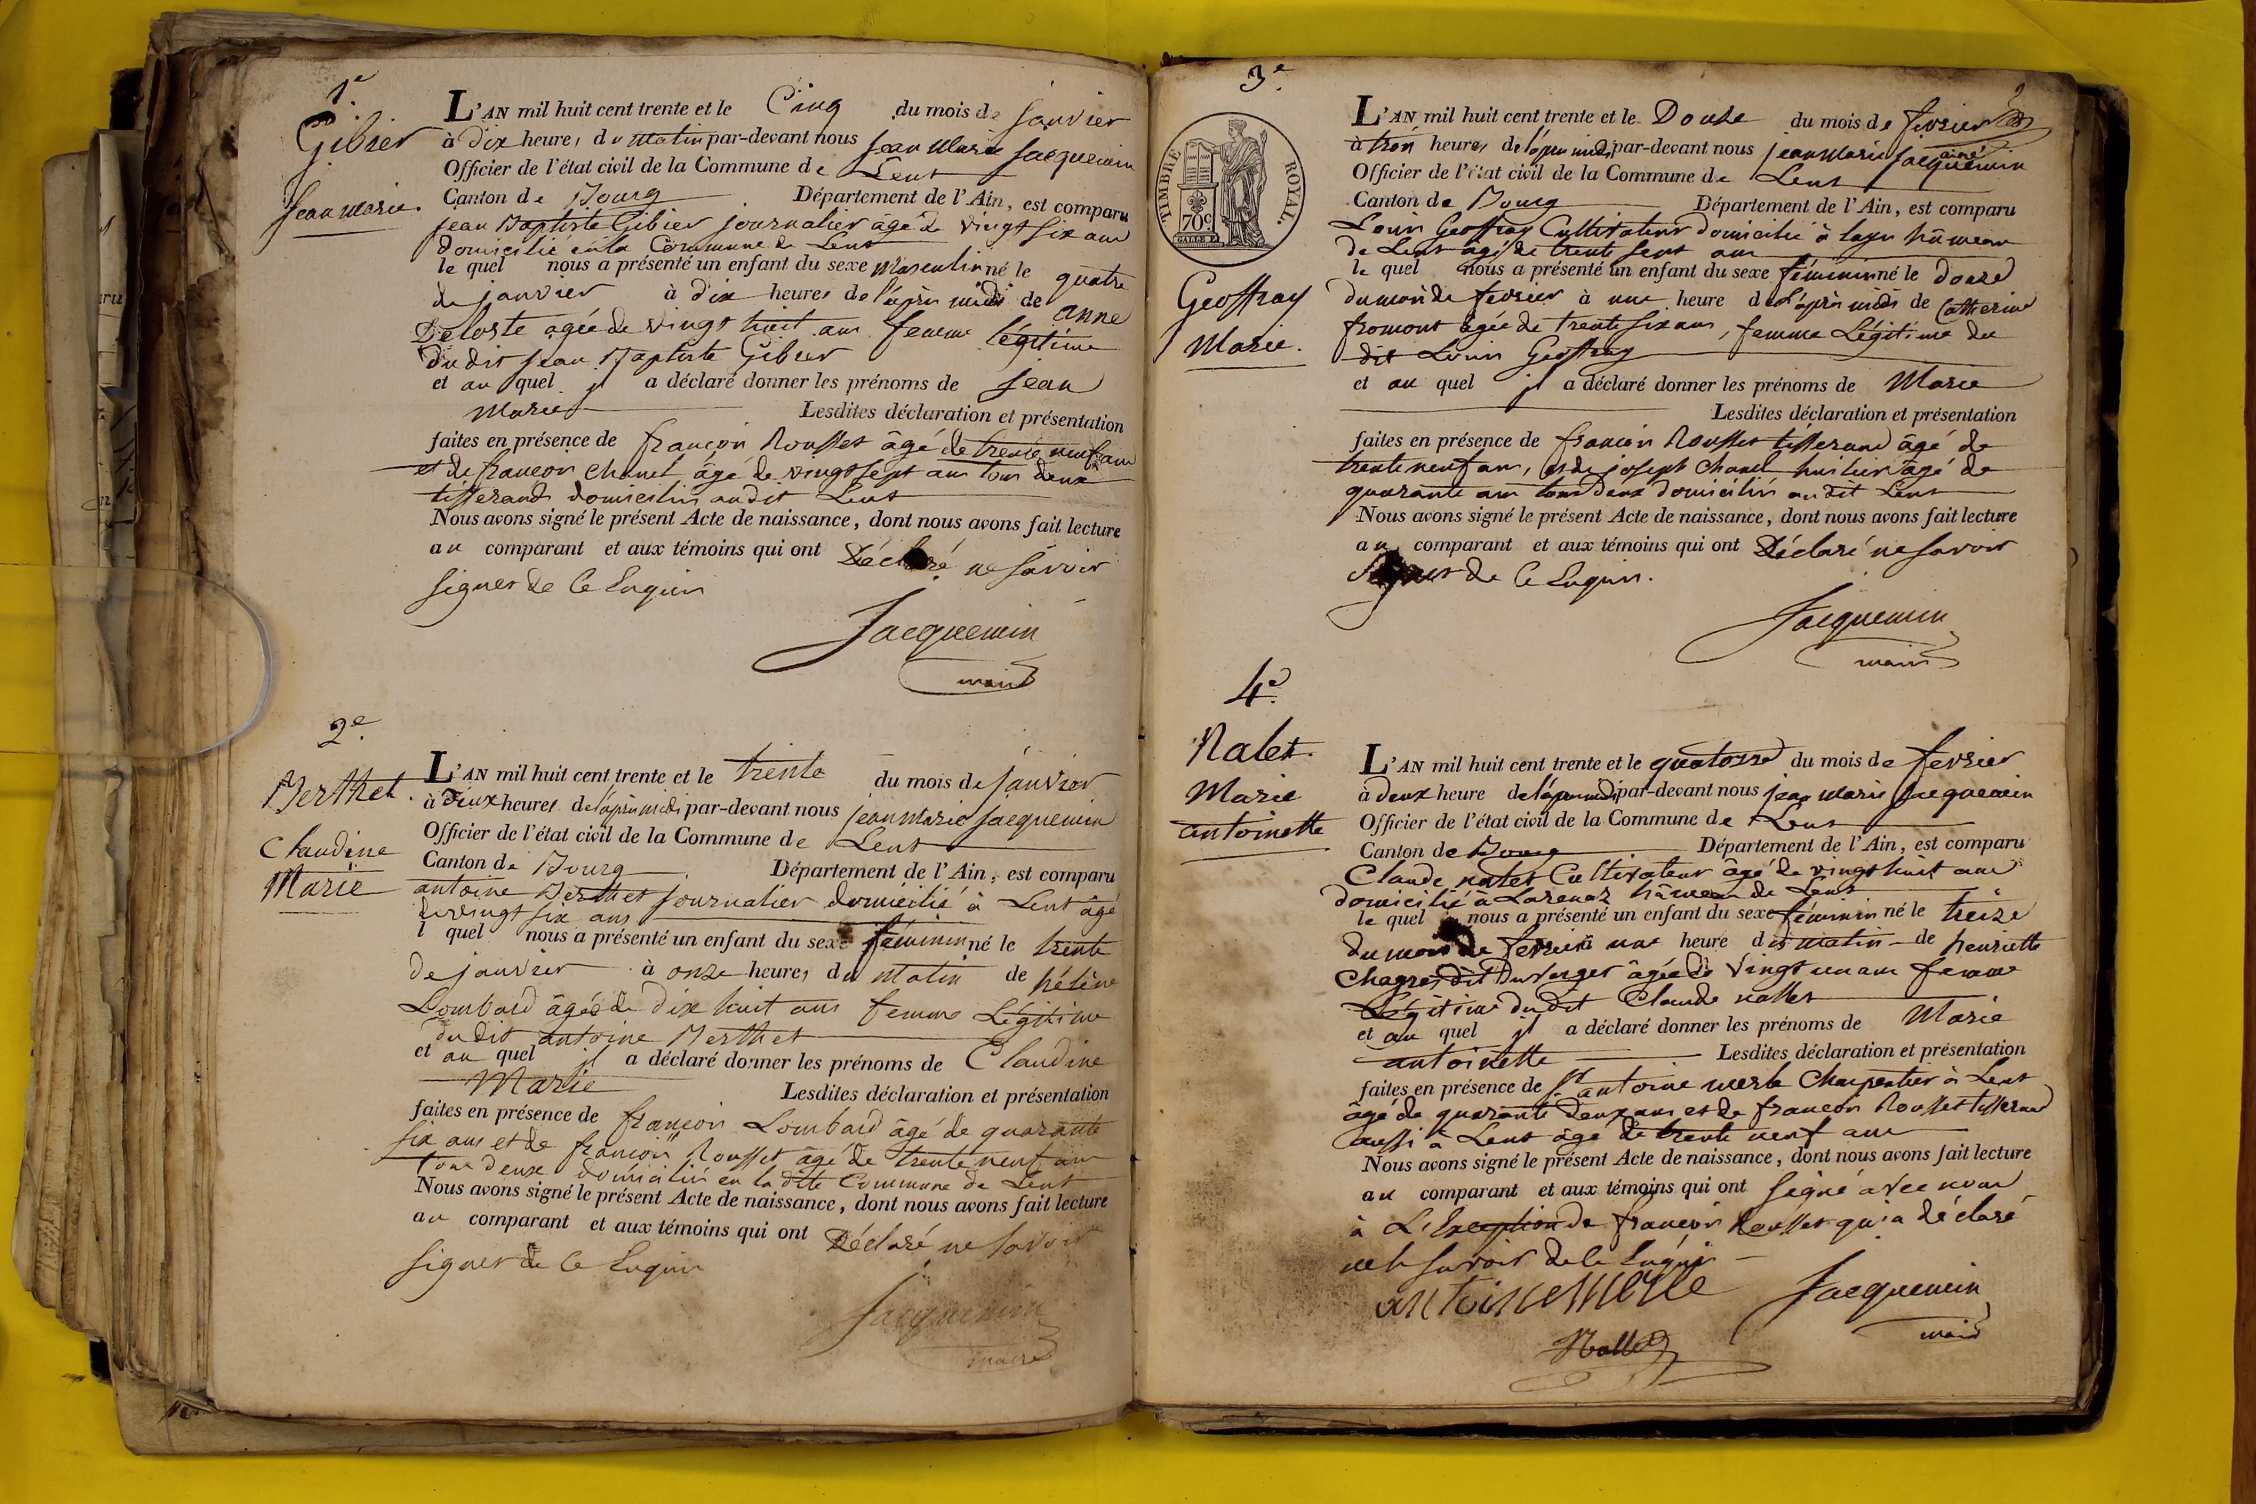 1e.
Gibier
Jean Marie.
L'AN mil huit cent trente et le Cinq du mois de janvier
à dix heures du matin par-devant nous jean Marie jacquemin
Officier de l'état civil de la Commune de Lent
Canton de Bourg Département de l'Ain, est comparu
jean Baptiste Gibier journalier âgé de vingt six ans
domicilié en la Commune de Lent
le quel nous a présenté un enfant du sexe Masculin né le quatre
de janvier à dix heures de l'après midi de anne
Deloste agée de vingt huit ans femme légitime
du dit jean Baptiste Gibier
et au quel il a déclaré donner les prénoms de jean
Marie Lesdites déclaration et présentation
faites en présence de françois Rousset âgé de trente neuf ans
et de françois Chanel âgé de vingt sept ans tous deux
tisserands domiciliés au dit Lent
Nous avons signé le présent Acte de naissance, dont nous avons fait lecture
au comparant et aux témoins qui ont Déclaré ne savoir
signer de ce Enquis
Jacquemin
maire
2e.
Berthet.
Claudine
Marie
L'AN mil huit cent trente et le trente du mois de janvier
à Deux heures de l'après midi par-devant nous jean Marie jacquemin
Officier de l'état civil de la Commune de Lent
Canton de Bourg Département de l'Ain, est comparu
antoine Berthet journalier domicilié à Lent âgé
de vingt six ans
l quel nous a présenté un enfant du sexe féminin né le trente
de janvier à onze heures du Matin de hélène
Lombard âgée de dix huit ans femme Légitime
du dit antoine Berthet
et au quel il a déclaré donner les prénoms de Claudine
Marie Lesdites déclaration et présentation
faites en présence de françois Lombard âgé de quarante
six ans et de françois Rousset âgé de trente neuf ans
tous deux domiciliés en la dite Commune de Lent
Nous avons signé le présent Acte de naissance, dont nous avons fait lecture
au comparant et aux témoins qui ont Déclaré ne savoir
signer de ce Enquis
Jacquemin
maire
3e.
TIMBRE ROYAL.
70c
Geoffray
Marie.
L'AN mil huit cent trente et le Douze du mois de fevrier
à trois heures de l'après midi par-devant nous jean Marie jacquemin
Officier de l'état civil de la Commune de Lent
Canton de Bourg Département de l'Ain, est comparu
Louis Geoffray Cultivateur domicilié à hâmeau
de Lent âgé de trente sept ans
le quel nous a présenté un enfant du sexe féminin né le douze
du mois de fevrier à une heure de l'après midi de Catherine
fromont âgée de trente six ans, femme Légitime du
dit Louis Geoffray
et au quel il a déclaré donner les prénoms de Marie
Lesdites déclaration et présentation
faites en présence de françois Rousset tisserand âgé de
trente neuf ans, et de joseph Chanel huilier âgé de
quarante ans tous deux domiciliés au dit Lent
Nous avons signé le présent Acte de naissance, dont nous avons fait lecture
au comparant et aux témoins qui ont Déclaré ne savoir
signer de ce Enquis.
Jacquemin
maire
4e.
Nalet.
Marie
antoinette
L'AN mil huit cent trente et le quatorze du mois de fevrier
à deux heure de l'après midi par-devant nous jean Marie jacquemin
Officier de l'état civil de la Commune de Lent
Canton de Bourg Département de l'Ain, est comparu
Claude nalet Cultivateur âgé de vingt huit ans
domicilié à Larenas hâmeau de Lent
le quel nous a présenté un enfant du sexe féminin né le treize
du mois de fevrier à une heure du matin de henriette
Chagre dit Duverger âgée de vingt un ans femme
Légitime du dit Claude nallet
et au quel il a déclaré donner les prénoms de Marie
antoinette Lesdites déclaration et présentation
faites en présence de Sr. antoine merle Charpentier à Lent
âgé de quarante deux ans et de françois Rousset tisserand
aussi à Lent âgé de trente neuf ans
Nous avons signé le présent Acte de naissance, dont nous avons fait lecture
au comparant et aux témoins qui ont signé avec nous
à L'Exception de françois Rousset qui a déclaré
ne le savoir de ce Enquis
antoine merle
Jacquemin
maire
Nallet